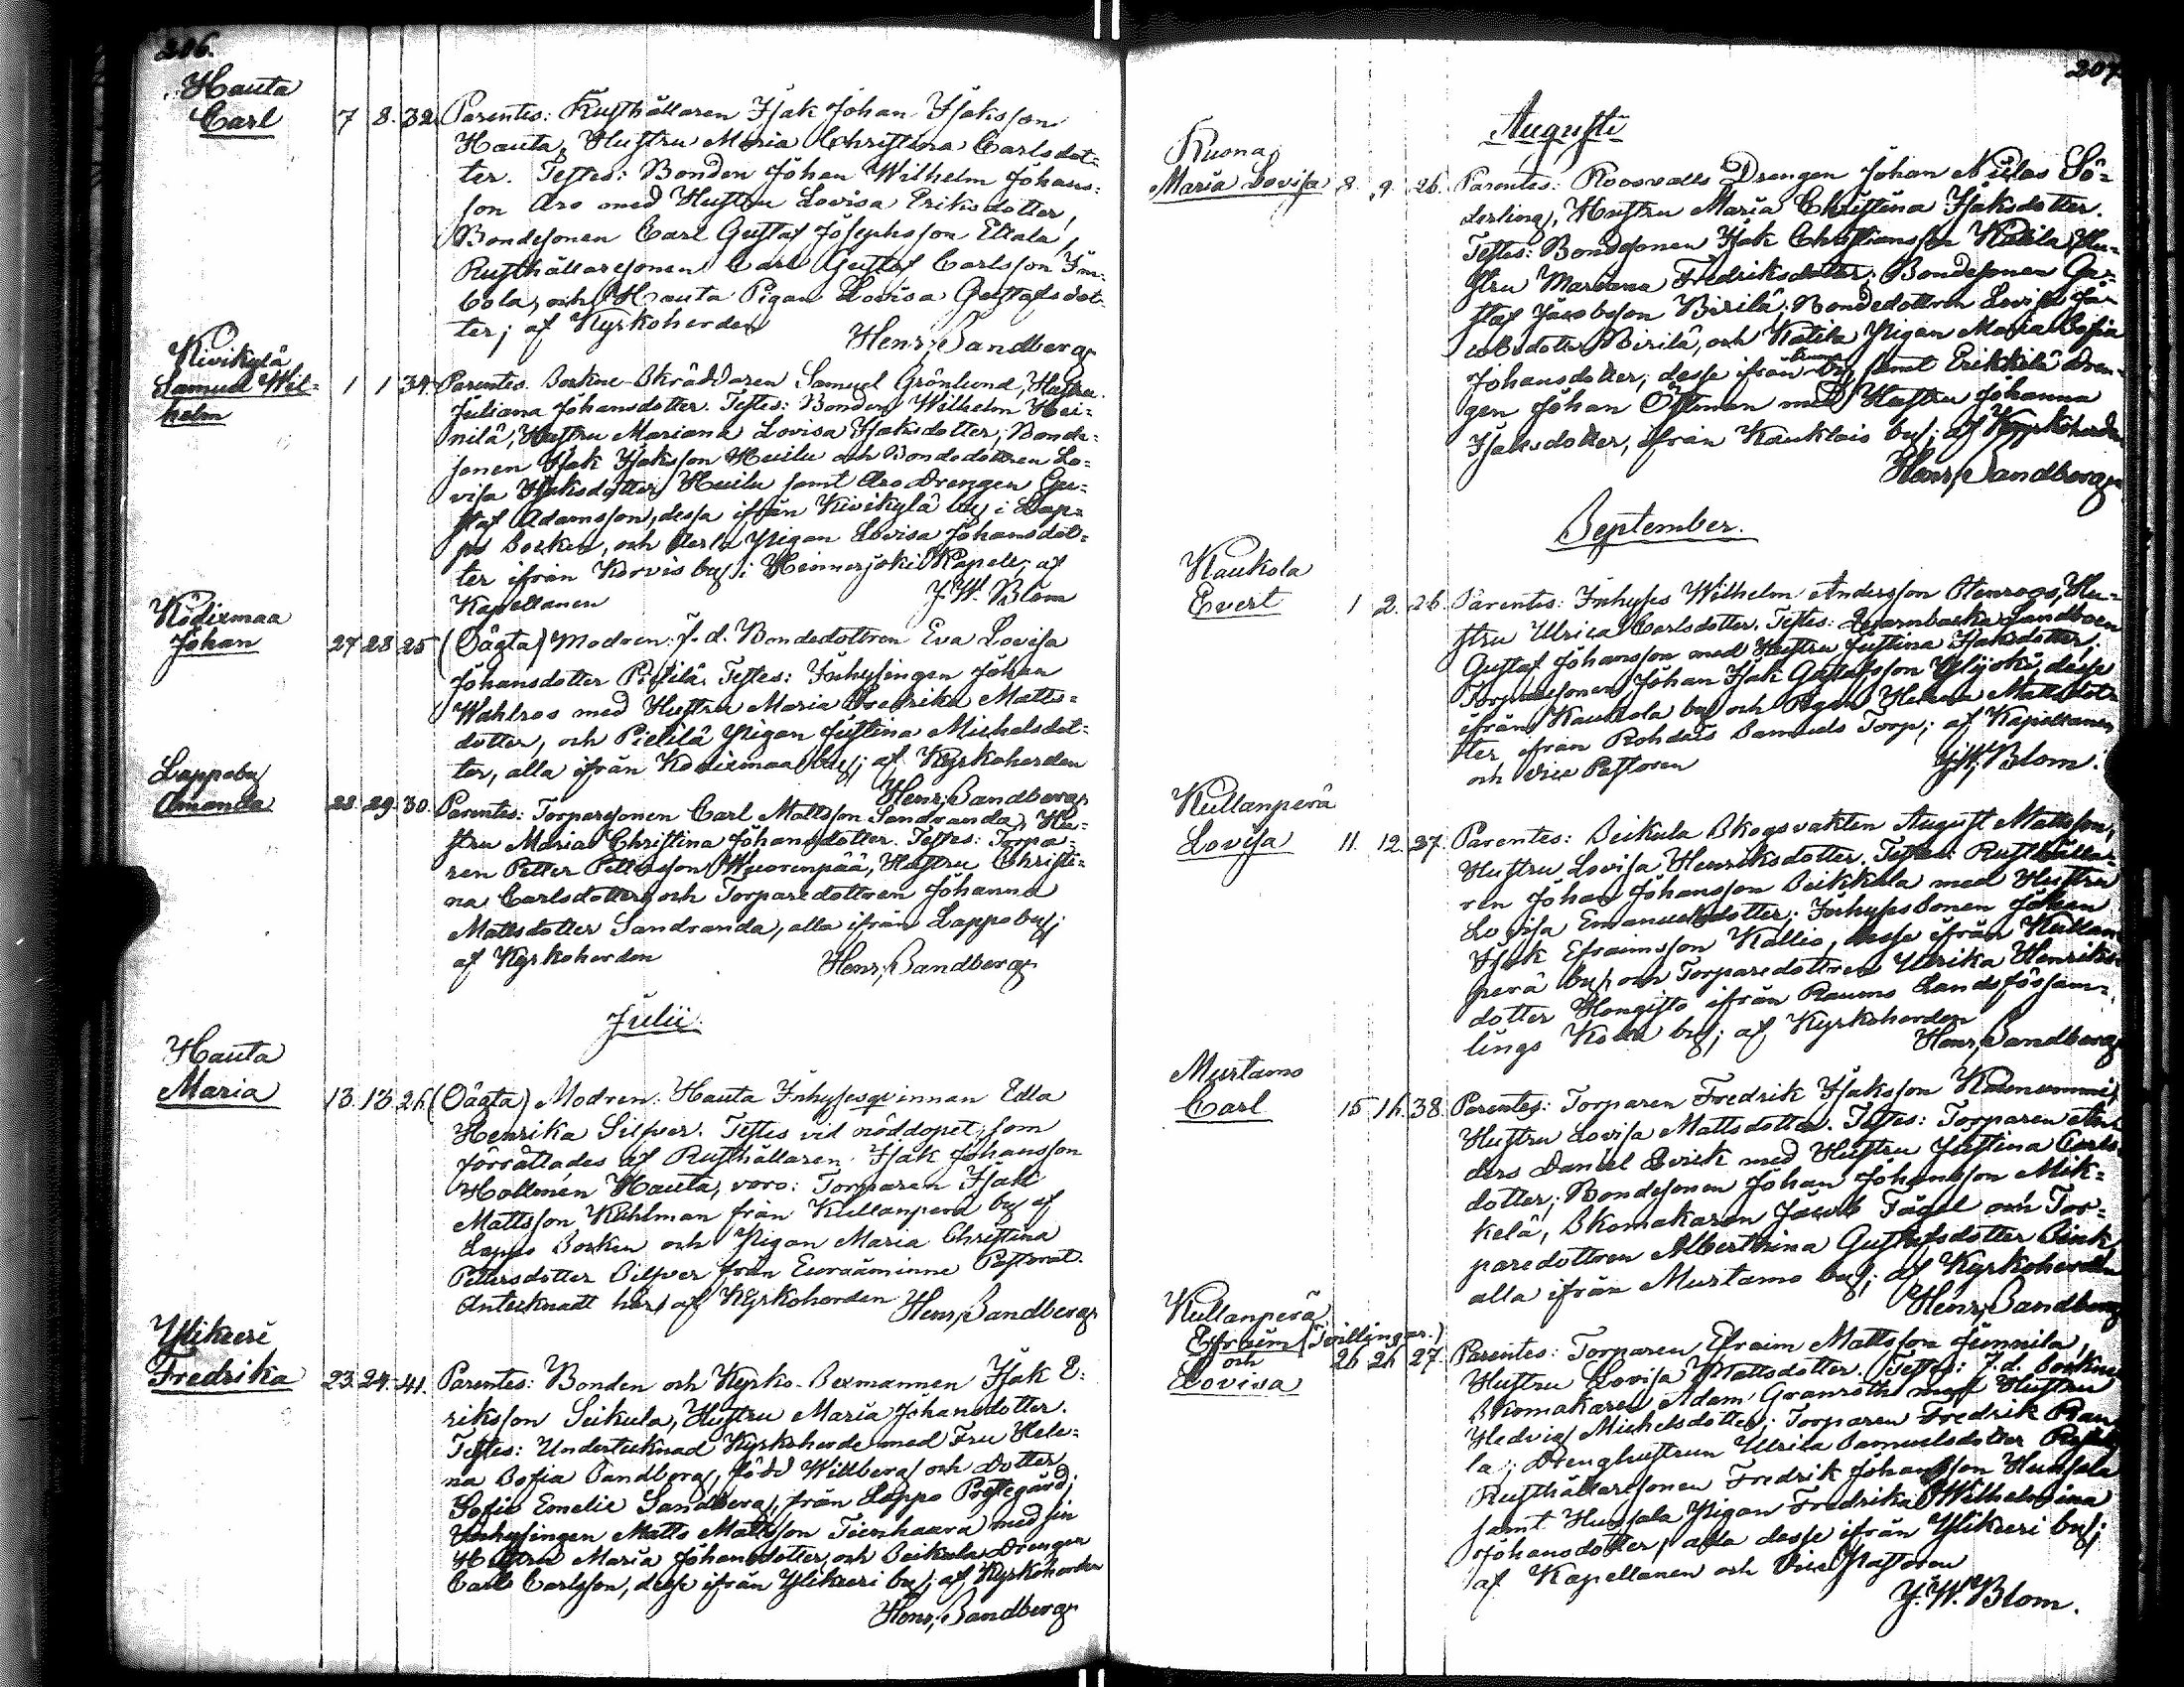 206.
Hauta
Carl 7 8. 32. Parentes: Rusthållaren Isak Johan Isaksson
Hauta, Hustru Maria Christina Carlsdot=
ter. Testes: Bonden Johan Wilhelm Johans=
son Aro med Hustru Lovisa Eriksdotter,
Bondesonen Carl Gustaf Josephsson Eltala,
Rusthållaresonen Carl Gustaf Carlsson
och Hauta Pigan Lovisa Gustafsdot=
ter; af Kyrkoherden Henr. Sandberg
Kivikylä
Samuel Wil=
helm 1 1 34. Parentes. Sockne-Skräddaren Samuel Grönlund, Hustru
Juliana Johansdotter. Testes: Bonden Wilhelm Hei=
nilä, Hustru Mariana Lovisa Isaksdotter, Bonde=
sonen Isak Isaksson Heilu och Bondedottren Lo=
visa Isaksdotter Heilu samt Aro Drengen Gu=
staf Adamsson, dessa ifrån Kivikylä by i Lap=
po Socken, och Pigan Lovisa Johansdot=
ter ifrån Korvis by i Hinnerjoki Kapell; af
Kapellanen J. W. Blom
Ködixmaa
Johan 27 28 25 (Oägta) Modren: f. d. Bondedottren Eva Lovisa
Johansdotter Pietilä. Testes: Inhysingen Johan
Wahlros med Hustru Maria Fredrika Matts=
dotter, och Pietilä Pigan Justina Michelsdot=
ter, alla ifrån Ködixmaa by; af Kyrkoherden
Henr. Sandberg
Lappoby
Amanda 28. 29. 30. Parentes: Torparesonen Carl Mattsson Sandranda, Hu=
stru Maria Christina Johansdotter. Testes: Torpa=
ren Petter Pettersson Wuorenpää, Hustru Christi=
na Carlsdotter, och Torparedottren Johanna
Mattsdotter Sandranda, alla ifrån Lappo by;
af Kyrkoherden Henr. Sandberg
Julii.
Hauta
Maria 13. 13. 26. (Oägta) Modren. Hauta Inhysesqvinnan Edla
Henrika Silfver. Testes vid nöddopet, som
förrättades af Rusthållaren Isak Johansson
Hollmén Hauta, voro: Torparen Isak
Mattsson Kuhlman från Kullanperä by af
Lappo Socken och Pigan Maria Christina
Pettersdotter Silfver från Euraåminne Pastorat.
Antecknadt här, af Kyrkoherden Henr. Sandberg
Ylikieri
Fredrika 23. 24. 41. Parentes: Bonden och Kyrko-Sexmannen Isak E=
riksson Seikula, Hustru Maria Johansdotter.
Testes: Undertecknad Kyrkoherde med Fru Hele=
na Sofia Sandberg, född Willberg och Dotter
Sofie Emelie Sandberg, från Lappo Prestegård;
Inhysingen Matts Mattsson Tienhaara med sin
Hustru Maria Johansdotter, och Seikula Drengen
Carl Carlsson, desse ifrån Ylikieri by; af Kyrkoherden
Henr. Sandberg
207.
Augusti
Kuona
Maria Lovisa 8. 9. 26. Parentes: Roosvalls Drengen Johan Niclas Sö=
derling, Hustru Maria Christina Isaksdotter.
Testes: Bondesonen Isak Christiansson Katila, Hu=
stru Mariana Fredriksdotter; Bondesonen Gu=
staf Jacobsson Birilä; Bondedottren Lovisa Ja=
cobsdotter Birilä, och Katila Pigan Maria Sofia
Johansdotter; desse ifrån Kuona by, samt Erikkilä Dren=
gen Johan Östman med Hustru Johanna
Isaksdotter, ifrån Kauklais by; af Kyrkoherden
Henr. Sandberg
September.
Kaukola
Evert 1 2. 26. Parentes: Inhyses Wilhelm Andersson Stenroos, Hu=
stru Ulrica Carlsdotter. Testes: Landboen
Gustaf Johansson med Hustru Justina Isaksdotter;
Torparesonen Johan Isak Gustafsson Ylijoki, desse
ifrån Kaukola by och Pigan Helena Mattsdot=
ter ifrån Rohdais Samuels Torp; af Kapellanen
och Vice Pastoren J. W. Blom.
Kullanperä
Lovisa 11. 12. 37. Parentes: Seikula Skogsvakten August Mattsson,
Hustru Lovisa Henriksdotter. Testes: Rusthålla=
ren Johan Johansson Seikkula med Hustru
Lovisa Emanuelsdotter; Inhyses Sonen Johan
Isak Efraimsson Kallio, desse ifrån Kullan=
perä by, och Torparedottren Ulrika Henriks=
dotter Hongisto ifrån Raumo Landsförsam=
lings by; af Kyrkoherden
Henr. Sandberg
Murtamo
Carl 15 16. 38. Parentes: Torparen Fredrik Isaksson
Hustru Lovisa Mattsdotter. Testes: Torparen An=
ders Daniel Qvick med Hustru Justina Carls=
dotter; Bondesonen Johan Johansson Mik=
kelä, Skomakaren Jacob Fågel och Tor=
paredottren Alberthina Gustafsdotter
alla ifrån Murtamo by; af Kyrkoherden
Henr. Sandberg
Kullanperä
Efraim (Tvillingar.)
och
Lovisa 26 26 27. Parentes: Torparen Efraim Mattsson Junnila,
Hustru Lovisa Mattsdotter. Testes: f. d. Sockne
Skomakaren Adam Granroth med Hustru
Hedvig Michelsdotter; Torparen Fredrik
la; Drenghustrun Ulrica Samuelsdotter
Rusthållaresonen Fredrik Johansson Hussala
samt Hussala Pigan Fredrika Wilhelmina
Johansdotter, alla desse ifrån Ylikieri by;
af Kapellanen och Vice Pastoren
J. W. Blom.